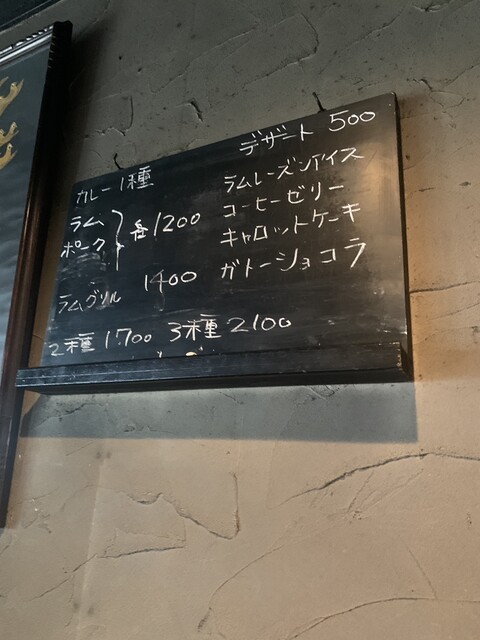 カレー1種
ラム
ポーク
各1200
ラムグリル 1400
2種 1700 3種 2100
デザート 500
ラムレーズンアイス
コーヒーゼリー
キャロットケーキ
ガトーショコラ